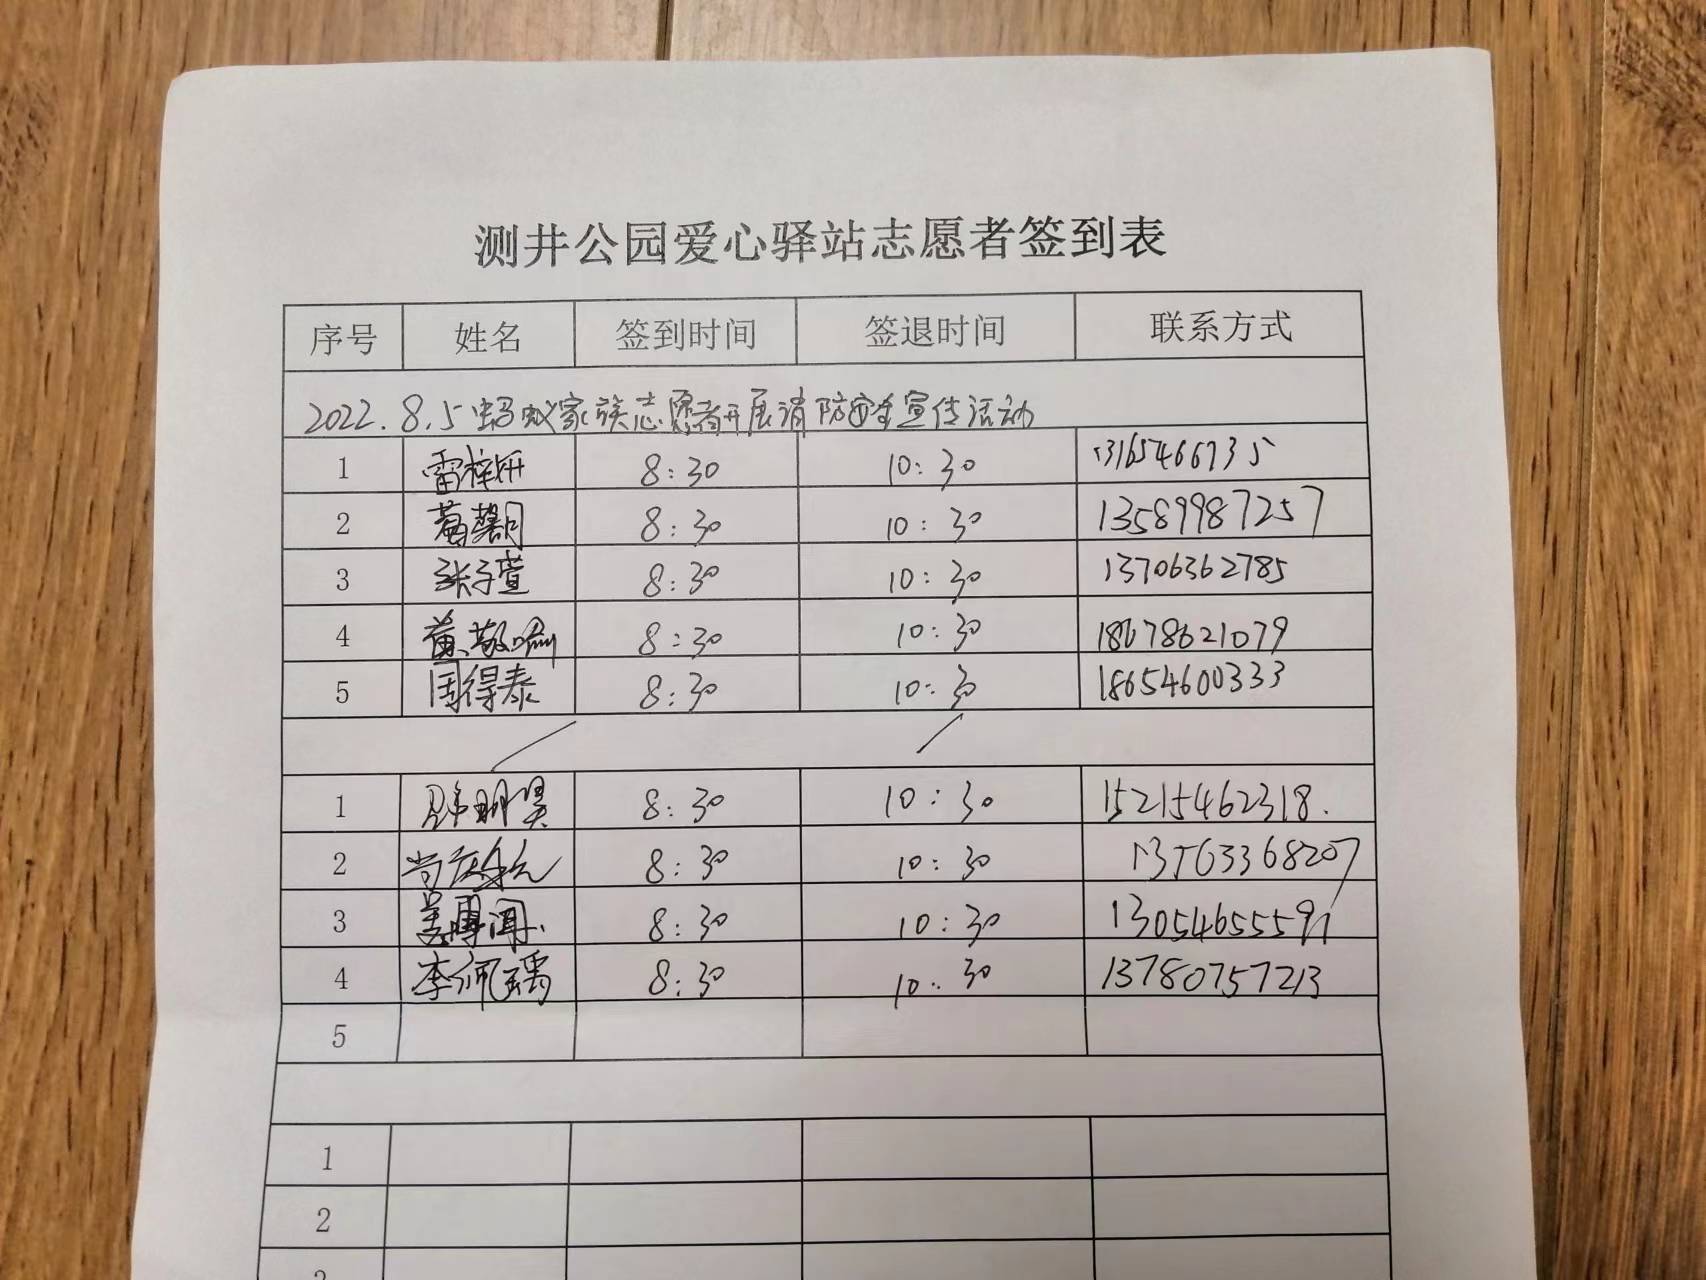 测井公园爱心驿站志愿者签到表
序号 姓名 签到时间 签退时间 联系方式
2022.8.5蚂蚁家族志愿者开展消防安全宣传活动
1 雷梓妍 8:30 10:30 13165466735
2 8:30 10:30 13589987257
3 张子萱 8:30 10:30 13706362785
4 黄敬喻 8:30 10:30 18678621079
5 周得泰 8:30 10:30 18654600333
1 明昊 8:30 10:30 15215462318.
2 尚 8:30 10:30 13563368207
3 8:30 10:30 13054655591
4 李佩瑀 8:30 10:30 13780757213
5
1
2